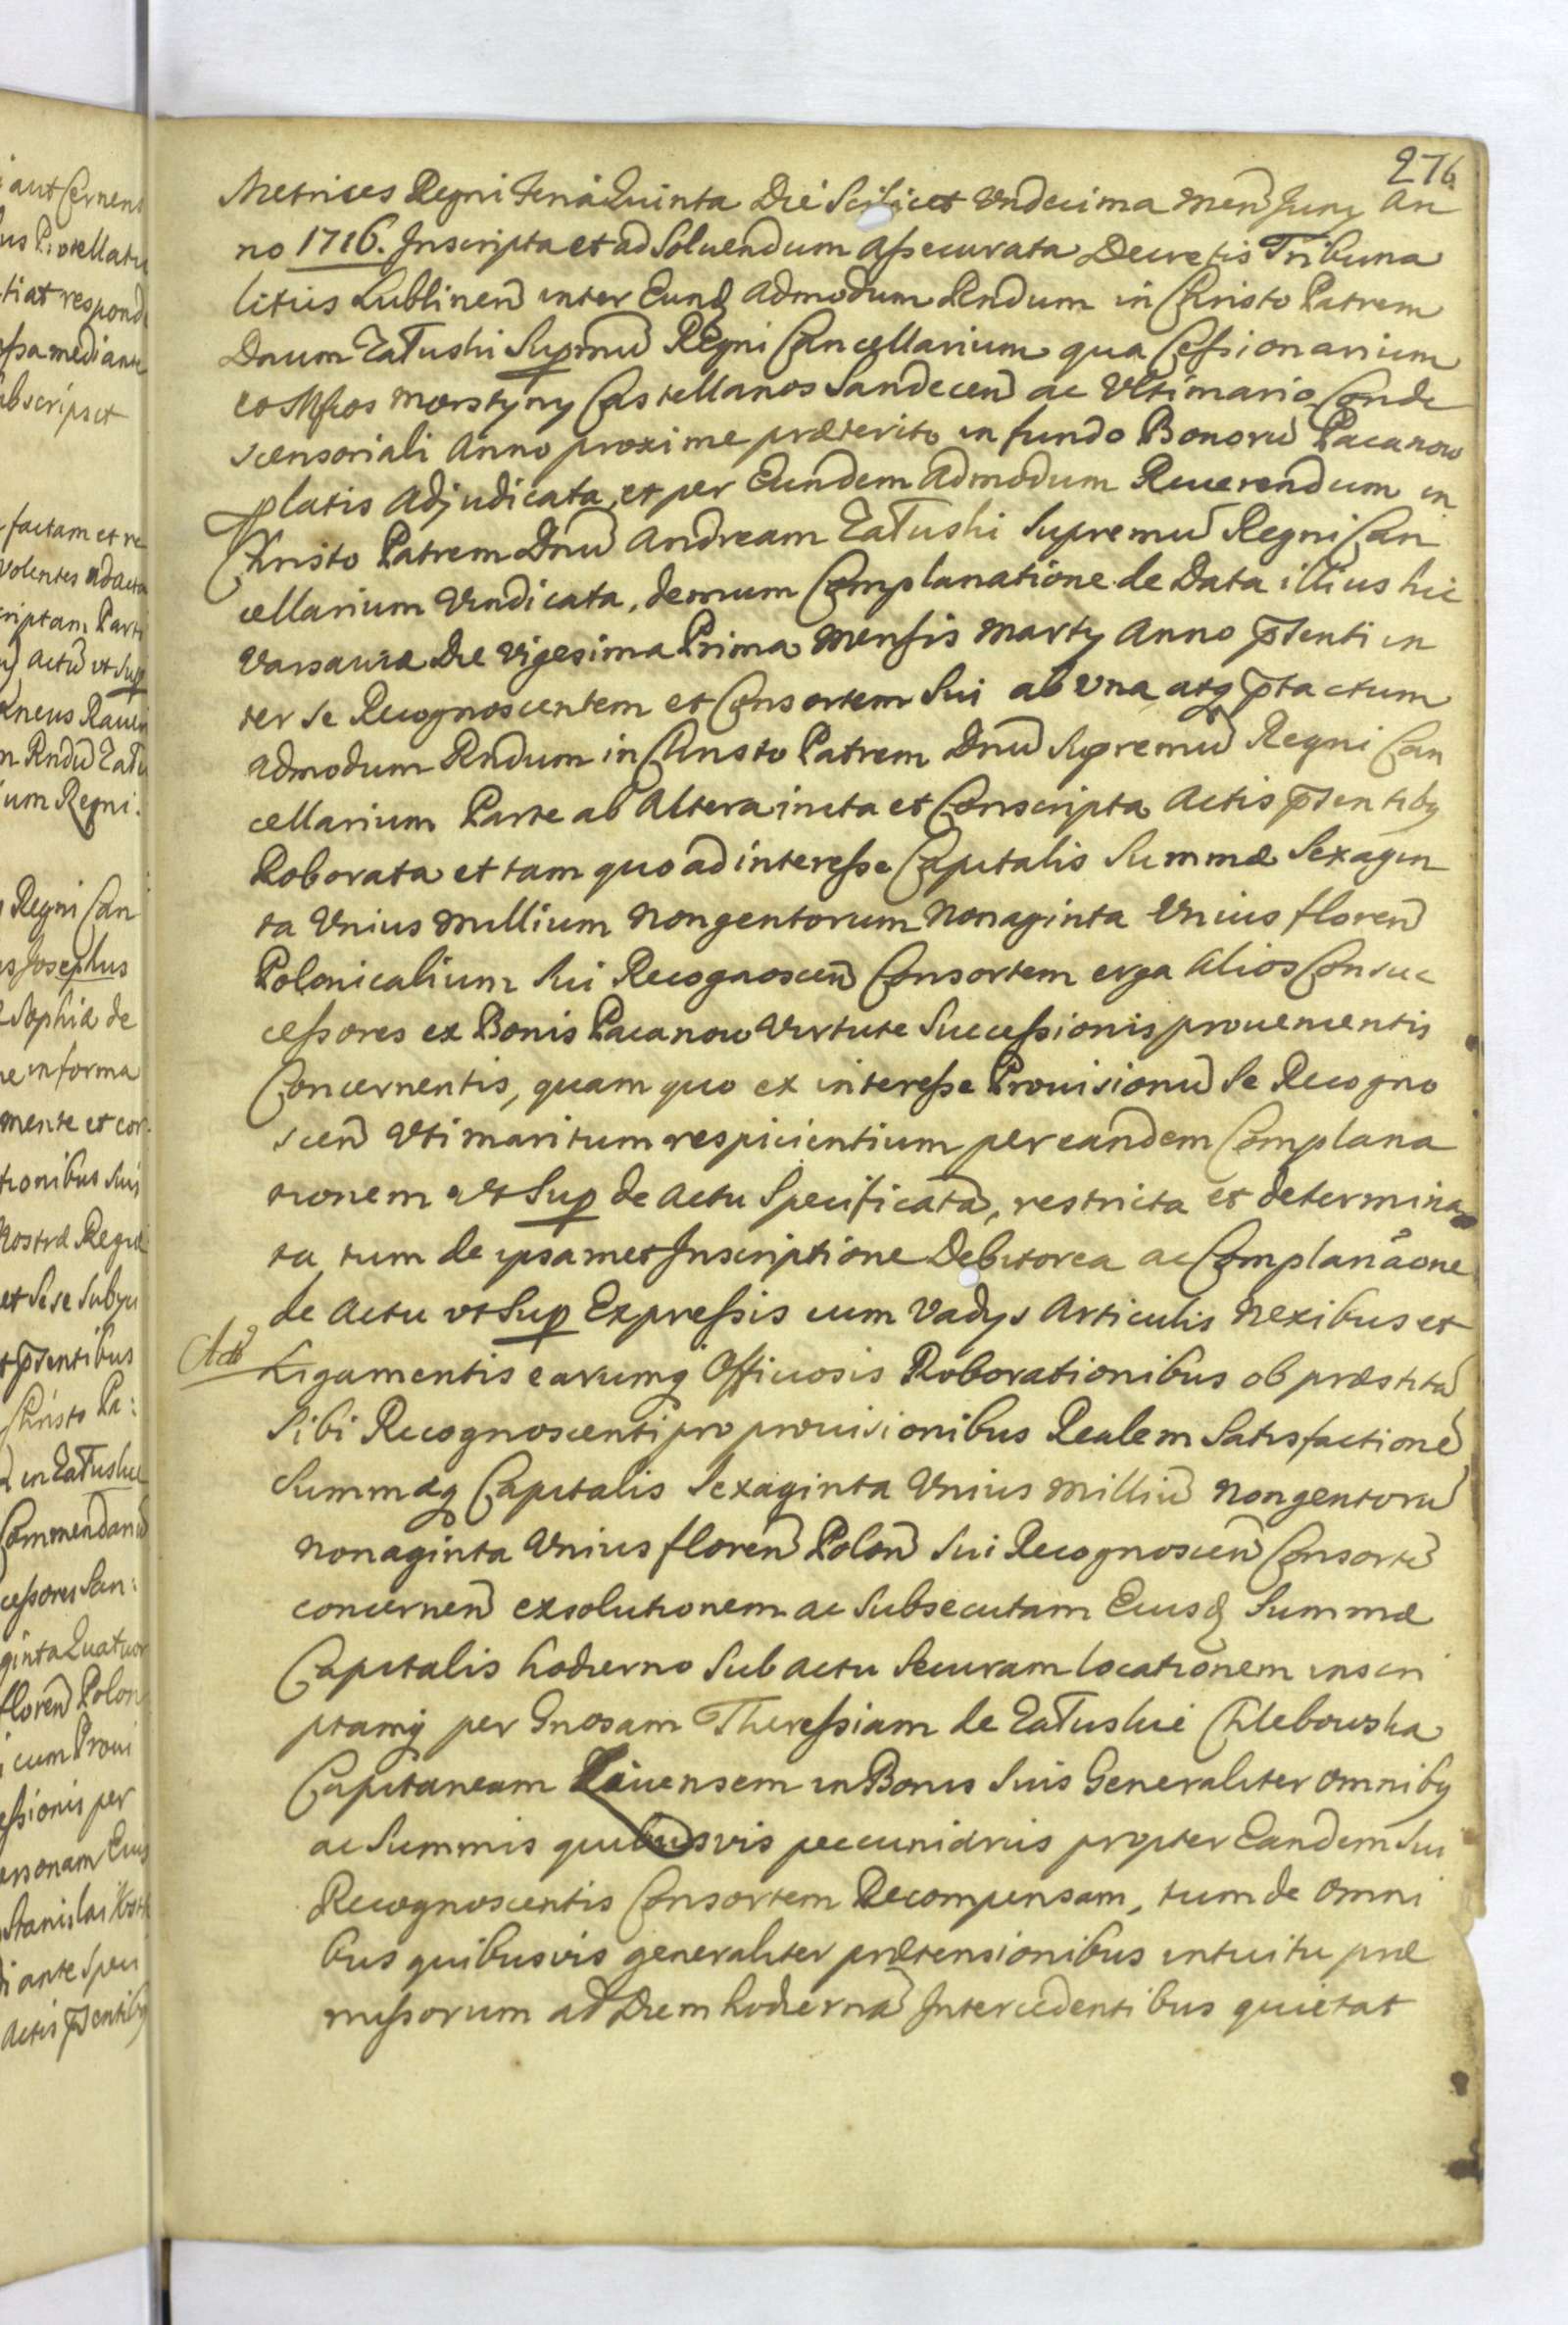 276
Metrices Regni Feria Quinta Die Scilicet Undecima Men Juny An
no 1716. Inscripta et ad Soluendum Assecurata Decretis Tribuna
litiis Lublinen inter Eund Admodum Rndum in Christo Patrem
Dnum Załuski Supmu Regni Cancellarium qua Cessionarium
et Mfcos Morstyny Castellanos Sandecen ac Vltimario Conde
scensoriali Anno proxime præterito in fundo Bonoru Pacanow
platis Adjudicata, et per Eundem Admodum Reuerendum in
Christo Patrem Dnu Andream Załuski Supremu Regni Can
cellarium Vindicata, demum Complanatione de Data illius hic
Varsauiæ Die Vigesima Prima Mensis Marty Anno pnti in
ter se Recognoscentem et Consortem Sui ab una atq ptactum
Admodum Rndum in Christo Patrem Dnu Supremu Regni Can
cellarium Parte ab Altera inita et Conscripta Actis psentiby
Roborata et tam quo ad interesse Capitalis Summæ Sexagin
ta Vnius Millium Nongentorum Nonaginta Vnius floren
Polonicalium Sui Recognoscen Consortem erga Alios Consuc
cessores ex Bonis Pacanow Virtute Successionis prouenientis
Concernentis, quam quo ex interesse Prouisionu Se Recogno
scen Vti maritum respicientium per eandem Complana
tionem vt Sup de Actu Specificata, restricta et determina
ta tum de ipsamet Inscriptione Debitorea ac Complanãone
de Actu vt Sup Expressis cum Vadys Articulis Nexibus et
Ligamentis earumq Officiosis Roborationibus ob præstita
Sibi Recognoscenti pro prouisionibus Realem Satisfactione
Summæq Capitalis Sexaginta Vnius Milliu Nongentoru
Nonaginta Vnius floren Polon Sui Recognoscen Consorte
concernen exsolutionem ac Subsecutam Eiusd Summæ
Capitalis hodierno Sub actu Securam locationem inscri
ptamq per Gnosam Theressiam de Załuskie Chlebowska
Capitaneam Liuensem in Bonis Suis Generaliter omniby
ac Summis quibusvis pecuniariis propter Eandem Sui
Recognoscentis Consortem Recompensam, tum de omni
bus quibusvis generaliter prætensionibus intuitu præ
missorum ad Diem hodierna Intercedentibus quietat